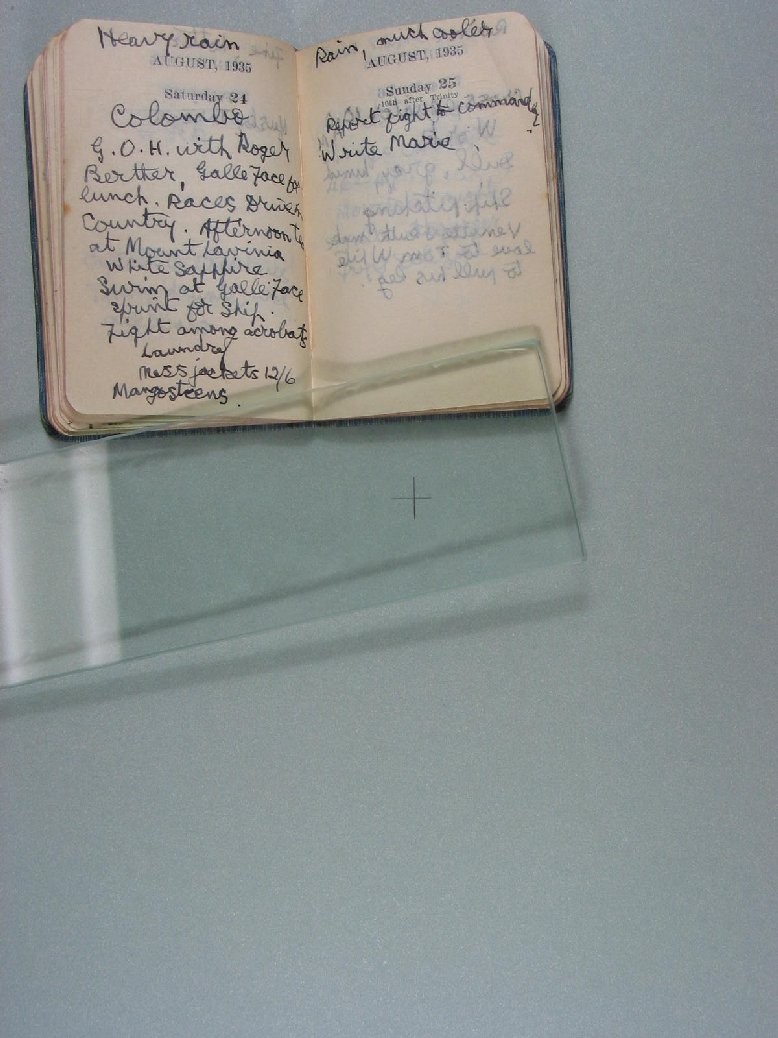 Heavy rain
AUGUST, 1935
Saturday 24
Colombo
G.O.H. with Roger
Berther, Galle Face for
lunch. Races Driven
Country. Afternoon Tea
at Mount Lavinia
White Sapphire
Swim at Galle Face
sprint for Ship.
Fight among acrobats
Laundry
Mess jackets 12/6
Mangosteens.
Rain, much cooler
AUGUST, 1935
Sunday 25
10th after Trinity
Report fight to
Write Marie